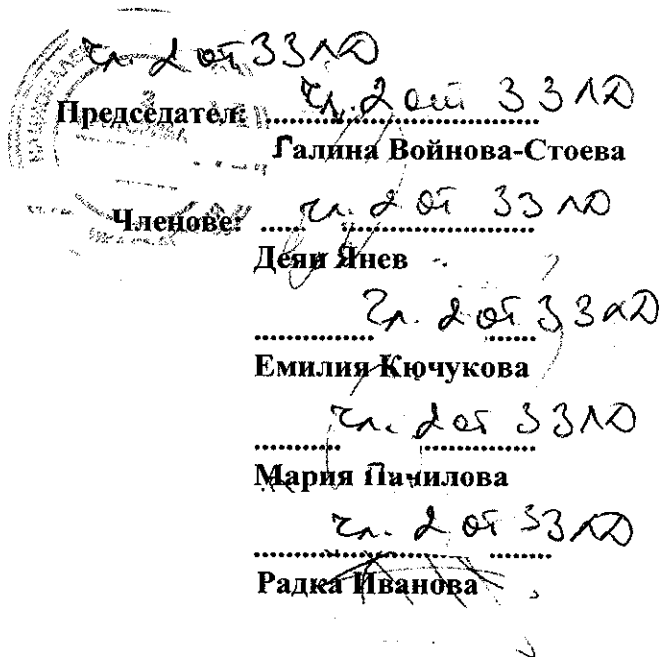 чл. 2 от ЗЗЛД
Председател: чл. 2 от ЗЗЛД
Галина Войнова-Стоева
Членове: чл. 2 от ЗЗЛД
Деян Янев
чл. 2 от ЗЗЛД
Емилия Кючукова
чл. 2 от ЗЗЛД
Мария
чл. 2 от ЗЗЛД
Радка Иванова